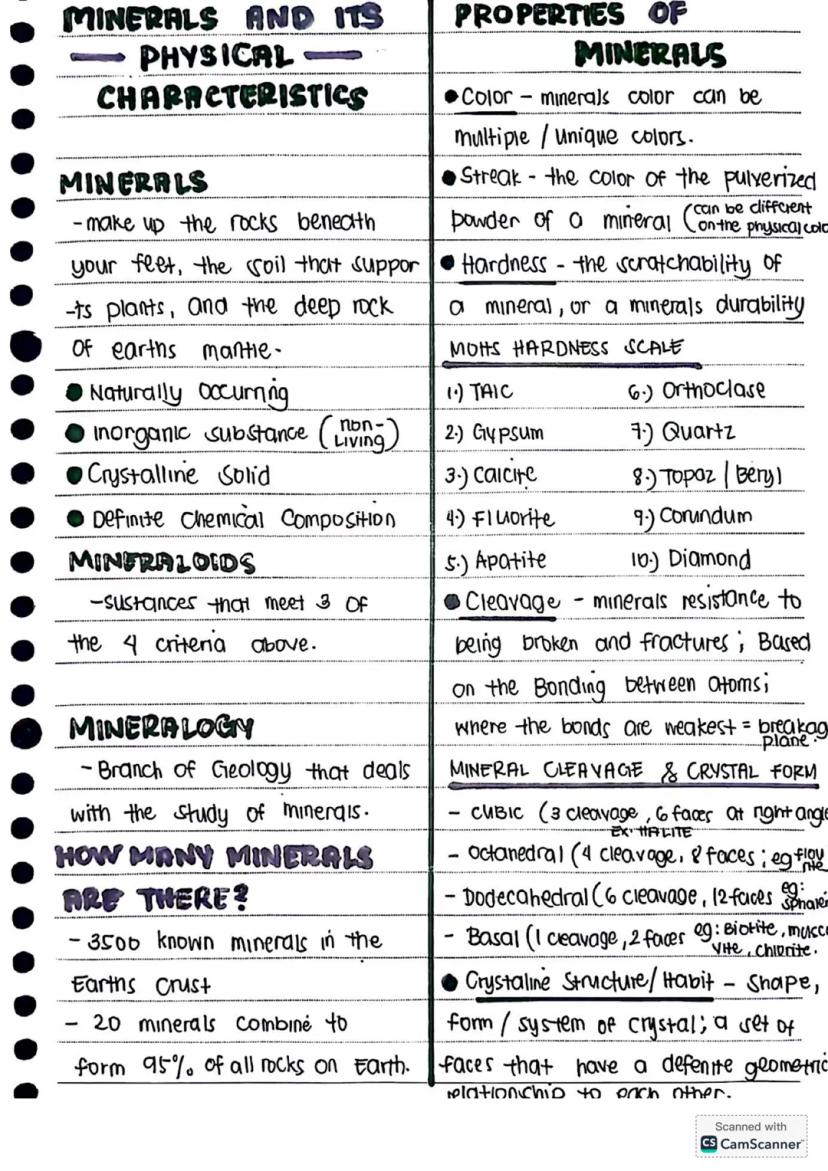 MINERALS AND ITS
PHYSICAL
CHARACTERISTICS
MINERALS
-make up the rocks beneath
your feet, the soil that suppor
-ts plants, and the deep rock
of earths mantle.
Naturally occurring
Inorganic substance (non-
Living)
Crystalline Solid
Definite Chemical Composition
MINERALOIDS
-sustances that meet 3 of
the 4 criteria above.
MINERALOGY
- Branch of Geology that deals
with the study of minerals.
HOW MANY MINERALS
ARE THERE?
- 3500 known minerals in the
Earths crust
- 20 minerals combine to
form 95% of all rocks on Earth.
PROPERTIES OF
MINERALS
Color - minerals color can be
multiple / unique colors.
Streak - the color of the pulverized
powder of a mineral (can be different
on the physical colo
Hardness - the scratchability of
a mineral, or a minerals durability
MOHS HARDNESS SCALE
1.) Talc 6.) Orthoclase
2.) Gypsum 7.) Quartz
3.) Calcite 8.) Topaz / Beryl
4.) Fluorite 9.) Corundum
5.) Apatite 10.) Diamond
Cleavage - minerals resistance to
being broken and fractures; Based
on the Bonding between atoms;
where the bonds are weakest = breakag
plane.
MINERAL CLEAVAGE & CRYSTAL FORM
- CUBIC (3 cleavage, 6 faces at right angle
EX: HALITE
- Octahedral (4 cleavage, 8 faces; eg flou
rite
- Dodecahedral (6 cleavage, 12 faces eg:
sphaler
- Basal (1 cleavage, 2 faces eg: Biotite, musco
vite, chlorite.
Crystaline Structure/Habit - Shape,
form / system of crystal; a set of
faces that have a defenite geometric
relationship to each other.
Scanned with
CS CamScanner